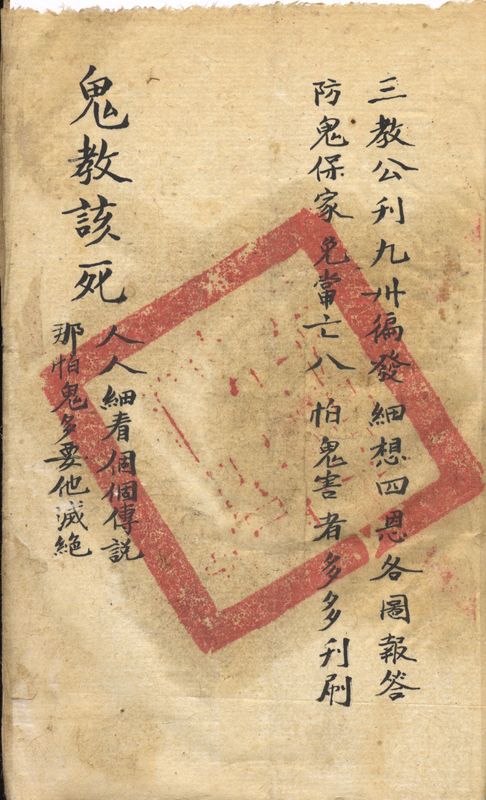 三教公刊九州徧發細想四恩各圖報答
防鬼保家免當亡八怕鬼害者多多刊刷
鬼教該死
人人細看個個傳説
那怕鬼多要他滅絶